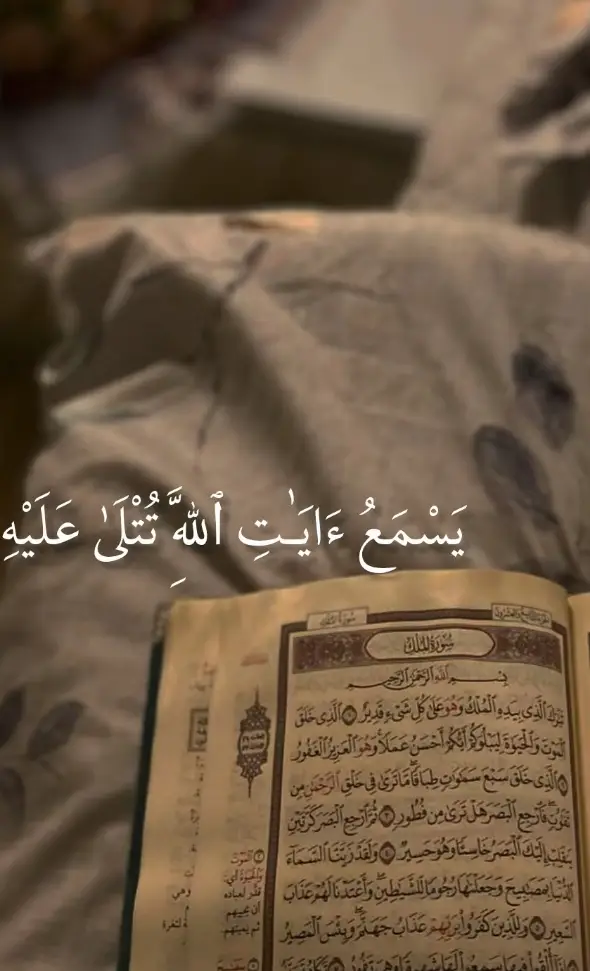 يَسْمَعُ ءَايَـٰتِ ٱللَّهِ تُتْلَىٰ عَلَيْهِ
سورة الملك
الجزء التاسع والعشرون
سُورَةُ المُلْكِ
بِسْمِ اللَّهِ الرَّحْمَٰنِ الرَّحِيمِ
تَبَٰرَكَ ٱلَّذِى بِيَدِهِ ٱلْمُلْكُ وَهُوَ عَلَىٰ كُلِّ شَىْءٍ قَدِيرٌ ١ ٱلَّذِى خَلَقَ
ٱلْمَوْتَ وَٱلْحَيَوٰةَ لِيَبْلُوَكُمْ أَيُّكُمْ أَحْسَنُ عَمَلًا وَهُوَ ٱلْعَزِيزُ ٱلْغَفُورُ
٢ ٱلَّذِى خَلَقَ سَبْعَ سَمَٰوَٰتٍ طِبَاقًا مَّا تَرَىٰ فِى خَلْقِ ٱلرَّحْمَٰنِ مِن
تَفَٰوُتٍ فَٱرْجِعِ ٱلْبَصَرَ هَلْ تَرَىٰ مِن فُطُورٍ ٣ ثُمَّ ٱرْجِعِ ٱلْبَصَرَ كَرَّتَيْنِ
يَنقَلِبْ إِلَيْكَ ٱلْبَصَرُ خَاسِئًا وَهُوَ حَسِيرٌ ٤ وَلَقَدْ زَيَّنَّا ٱلسَّمَآءَ
ٱلدُّنْيَا بِمَصَٰبِيحَ وَجَعَلْنَٰهَا رُجُومًا لِّلشَّيَٰطِينِ وَأَعْتَدْنَا لَهُمْ عَذَابَ
ٱلسَّعِيرِ ٥ وَلِلَّذِينَ كَفَرُوا۟ بِرَبِّهِمْ عَذَابُ جَهَنَّمَ وَبِئْسَ ٱلْمَصِيرُ